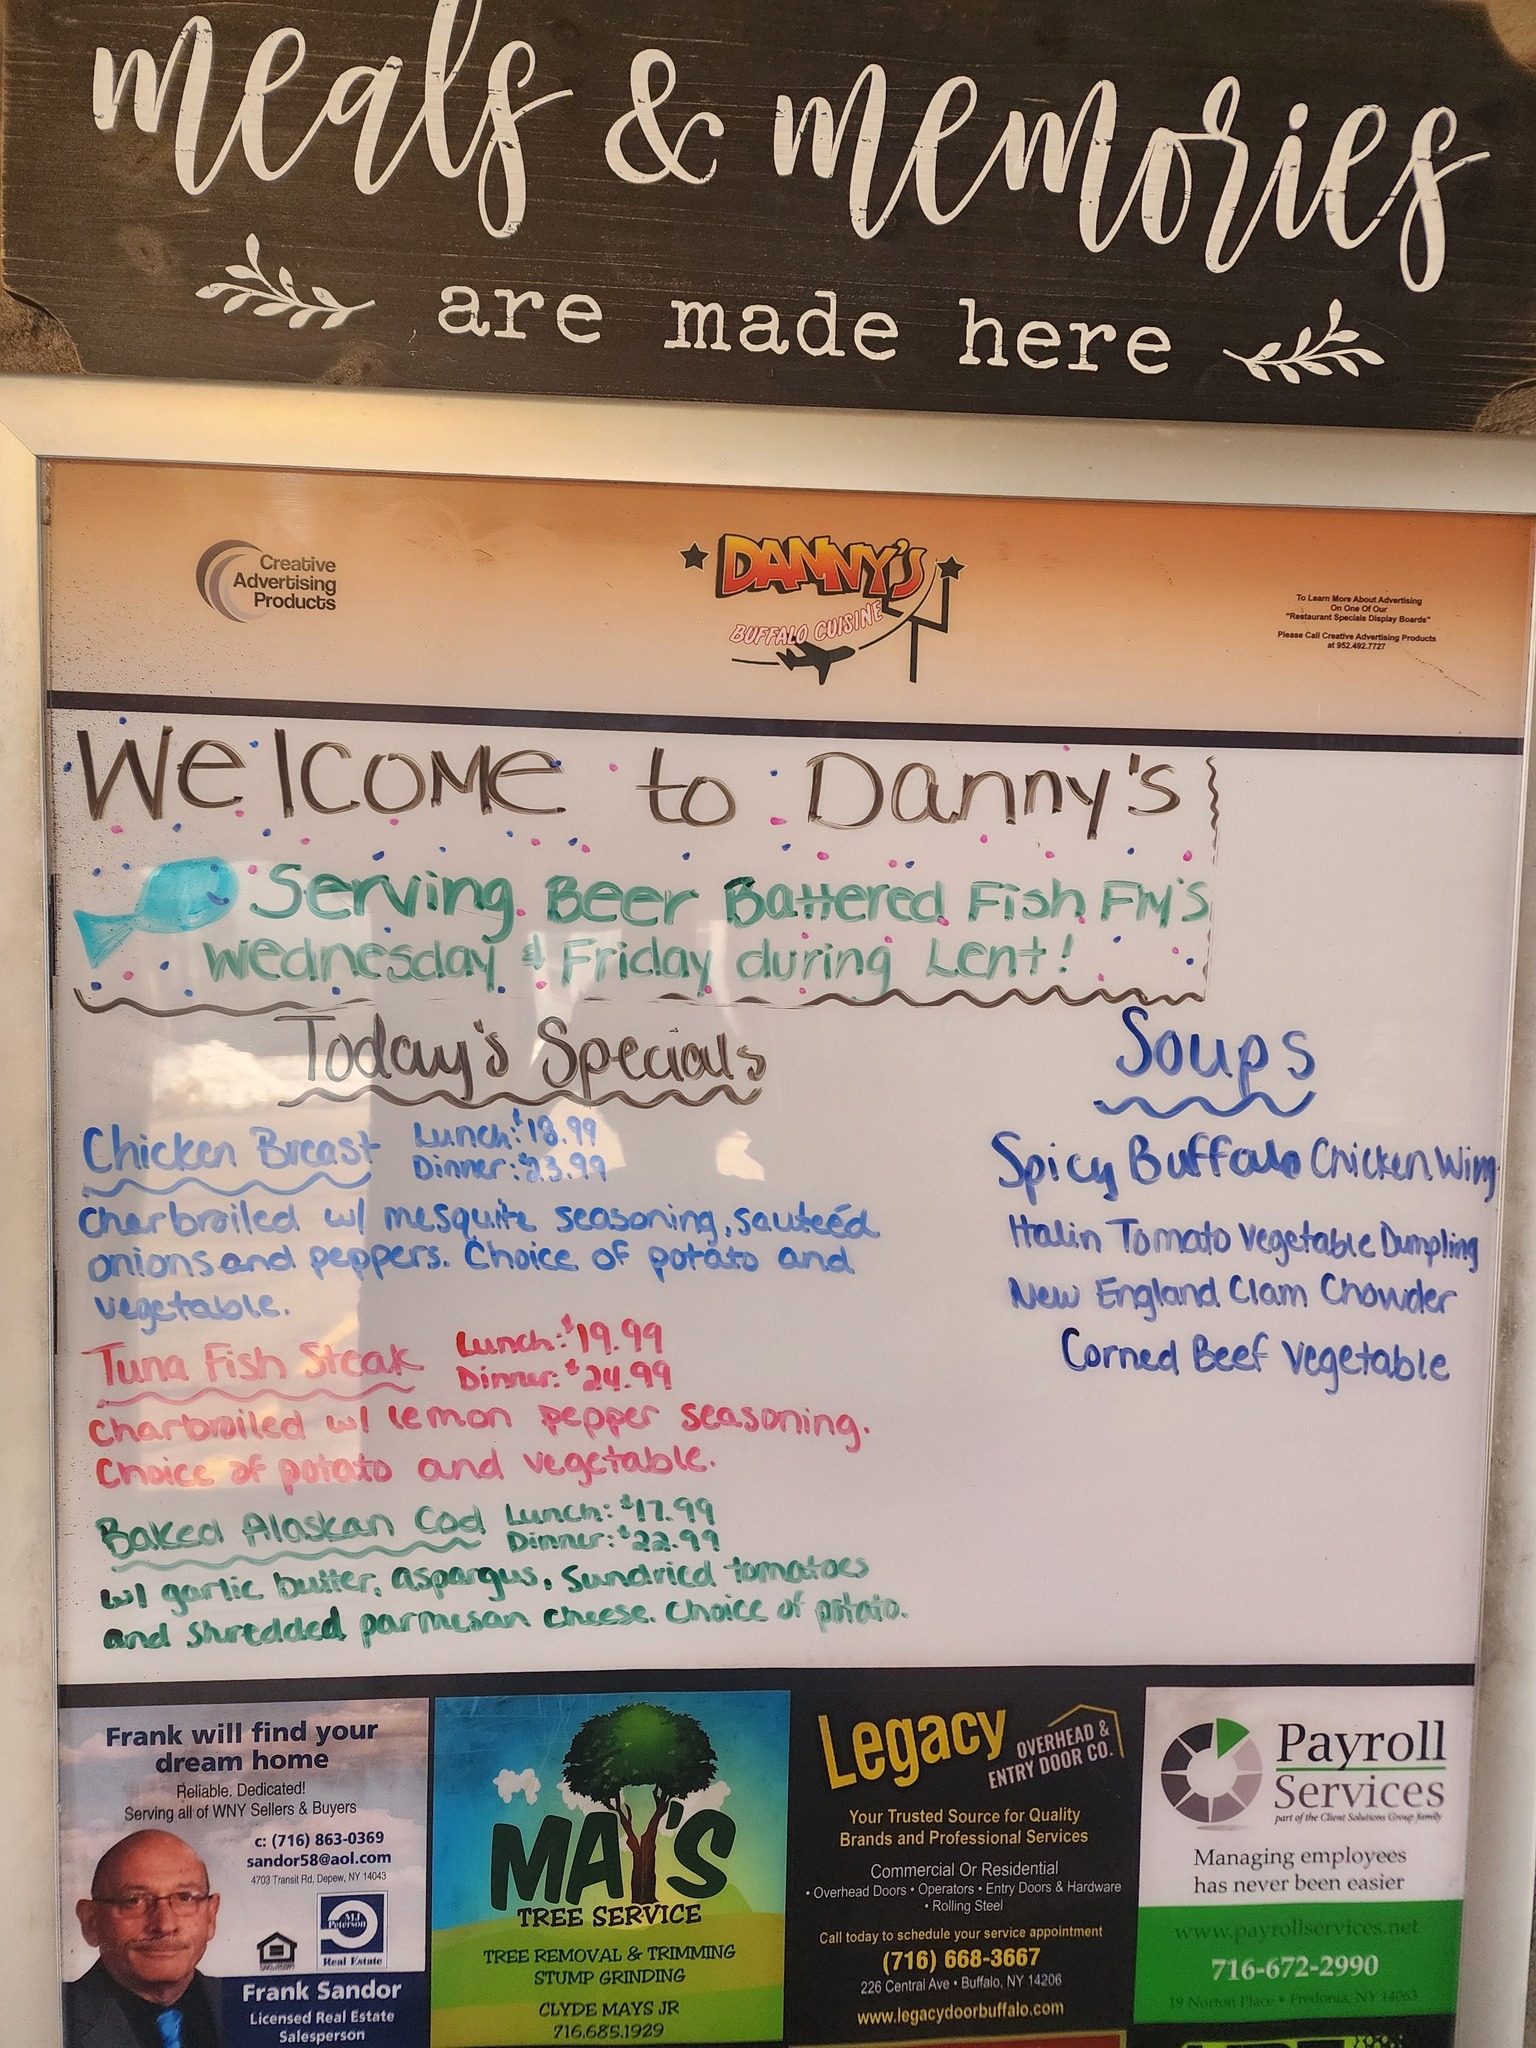 meals & memories
are made here
Creative
Advertising
Products
DANNY'S
BUFFALO CUISINE
To Learn More About Advertising
On One Of Our
"Restaurant Specials Display Boards"
Please Call Creative Advertising Products
at 952.492.7727
Welcome to Danny's
Serving Beer Battered Fish Fry's
Wednesday & Friday during Lent!
Today's Specials
Chicken Breast Lunch: $18.99
Dinner: $23.99
Charbroiled w/ mesquite seasoning, sauteéd
onions and peppers. Choice of potato and
vegetable.
Tuna Fish Steak Lunch: $19.99
Dinner: $24.99
Charbroiled w/ lemon pepper seasoning.
Choice of potato and vegetable.
Baked Alaskan Cod Lunch: $17.99
Dinner: $22.99
w/ garlic butter, aspargus, sundried tomatoes
and shredded parmesan cheese. Choice of potato.
Soups
Spicy Buffalo Chicken Wing
Italin Tomato Vegetable Dumpling
New England Clam Chowder
Corned Beef Vegetable
Frank will find your
dream home
Reliable. Dedicated!
Serving all of WNY Sellers & Buyers
c: (716) 863-0369
sandor58@aol.com
4703 Transit Rd, Depew, NY 14043
MJ
Peterson
Real Estate
Frank Sandor
Licensed Real Estate
Salesperson
MAY'S
TREE SERVICE
TREE REMOVAL & TRIMMING
STUMP GRINDING
CLYDE MAYS JR
716.685.1929
Legacy
OVERHEAD &
ENTRY DOOR CO.
Your Trusted Source for Quality
Brands and Professional Services
Commercial Or Residential
• Overhead Doors • Operators • Entry Doors & Hardware
• Rolling Steel
Call today to schedule your service appointment
(716) 668-3667
226 Central Ave • Buffalo, NY 14206
www.legacydoorbuffalo.com
Payroll
Services
part of the Client Solutions Group family
Managing employees
has never been easier
www.payrollservices.net
716-672-2990
19 Norton Place • Fredonia, NY 14063